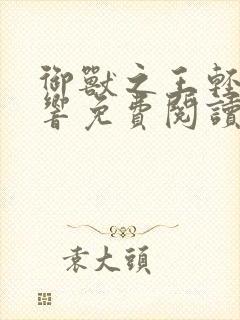 御獸之王輕
響免費閱讀
袁大頭